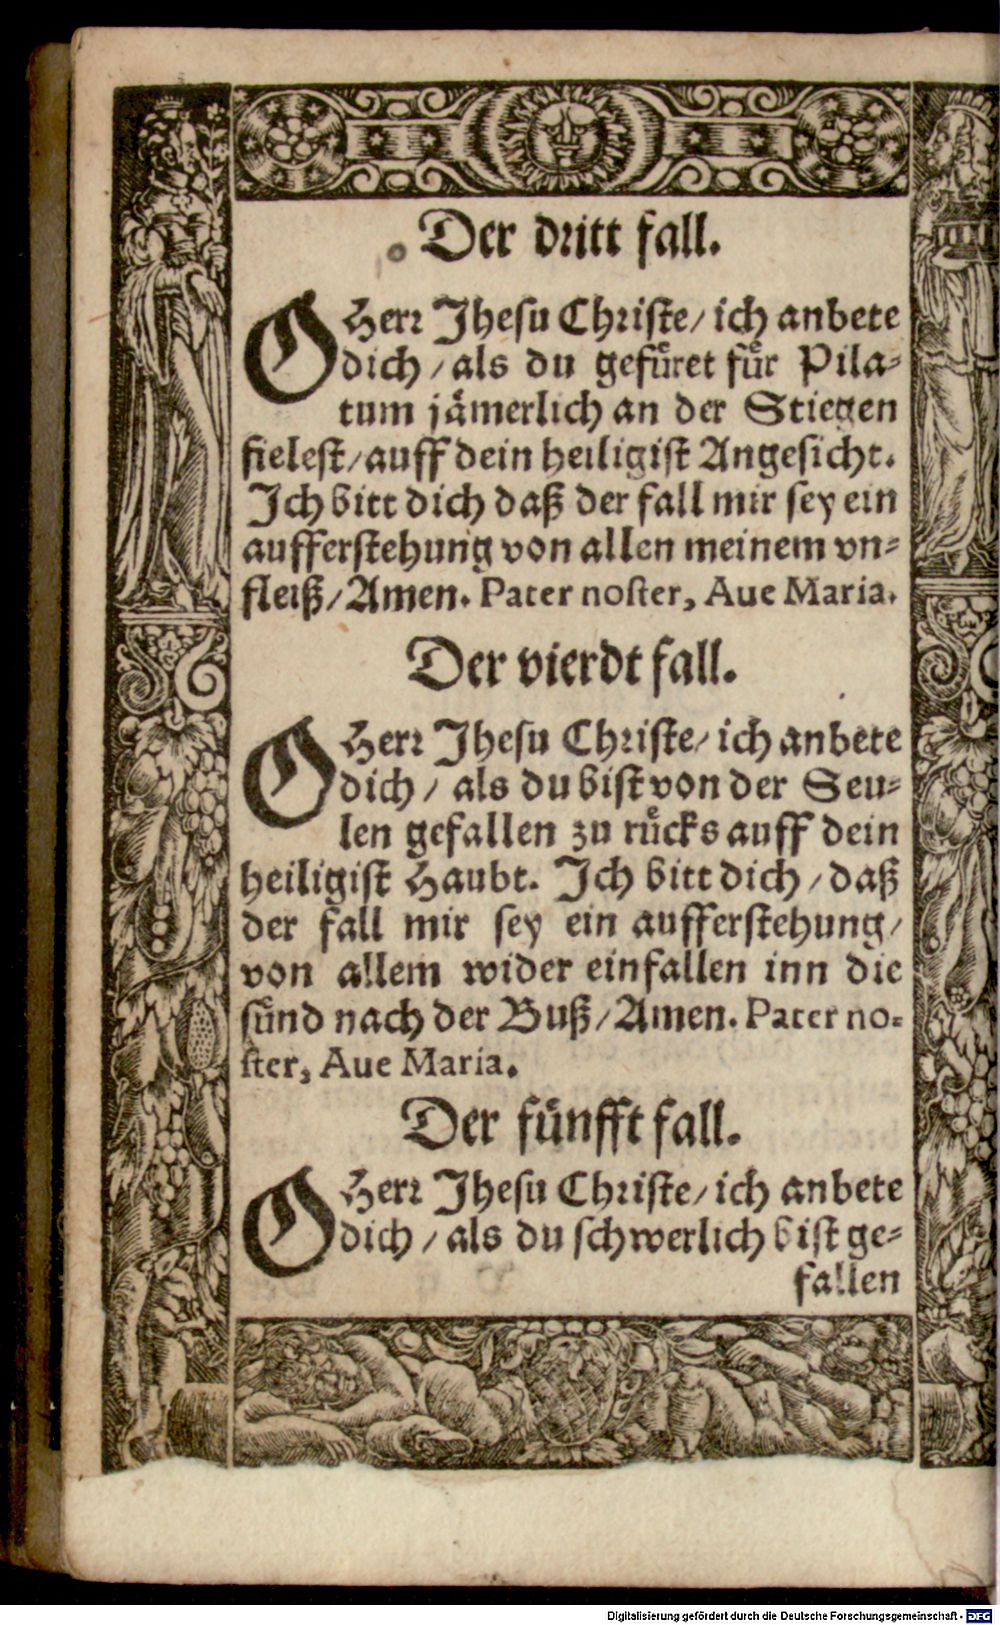 Der dritt fall.
O Herr Jhesu Christe/ ich anbete
dich / als du gefuͤret fuͤr Pila⸗
tum jaͤmerlich an der Stiegen
fielest/ auff dein heiligist Angesicht.
Ich bitt dich daß der fall mir sey ein
aufferstehung von allen meinem vn⸗
fleiß/ Amen. Pater noster, Aue Maria.
Der vierdt fall.
O Herr Jhesu Christe/ ich anbete
dich / als du bist von der Seu⸗
len gefallen zu ruͤcks auff dein
heiligist Haubt. Ich bitt dich / daß
der fall mir sey ein aufferstehung/
von allem wider einfallen inn die
suͤnd nach der Buß/ Amen. Pater no⸗
ster, Aue Maria.
Der fuͤnfft fall.
O Herr Jhesu Christe/ ich anbete
dich / als du schwerlich bist ge⸗
fallen
Digitalisierung gefördert durch die Deutsche Forschungsgemeinschaft - DFG